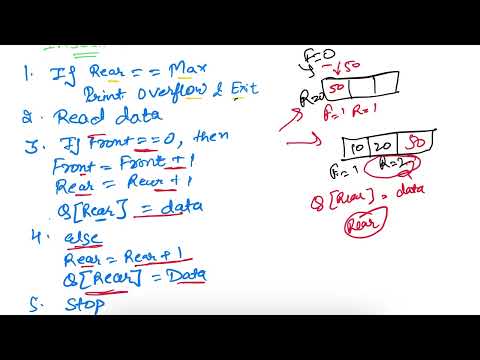 1. If Rear == Max
Print Overflow & Exit
2. Read data
3. If Front == 0, then
Front = Front + 1
Rear = Rear + 1
Q[Rear] = data
4. else
Rear = Rear + 1
Q[Rear] = Data
5. Stop
F=0
50
R=0
50
F=1 R=1
10 20 50
F=1 R=2
Q[Rear] = data
Rear